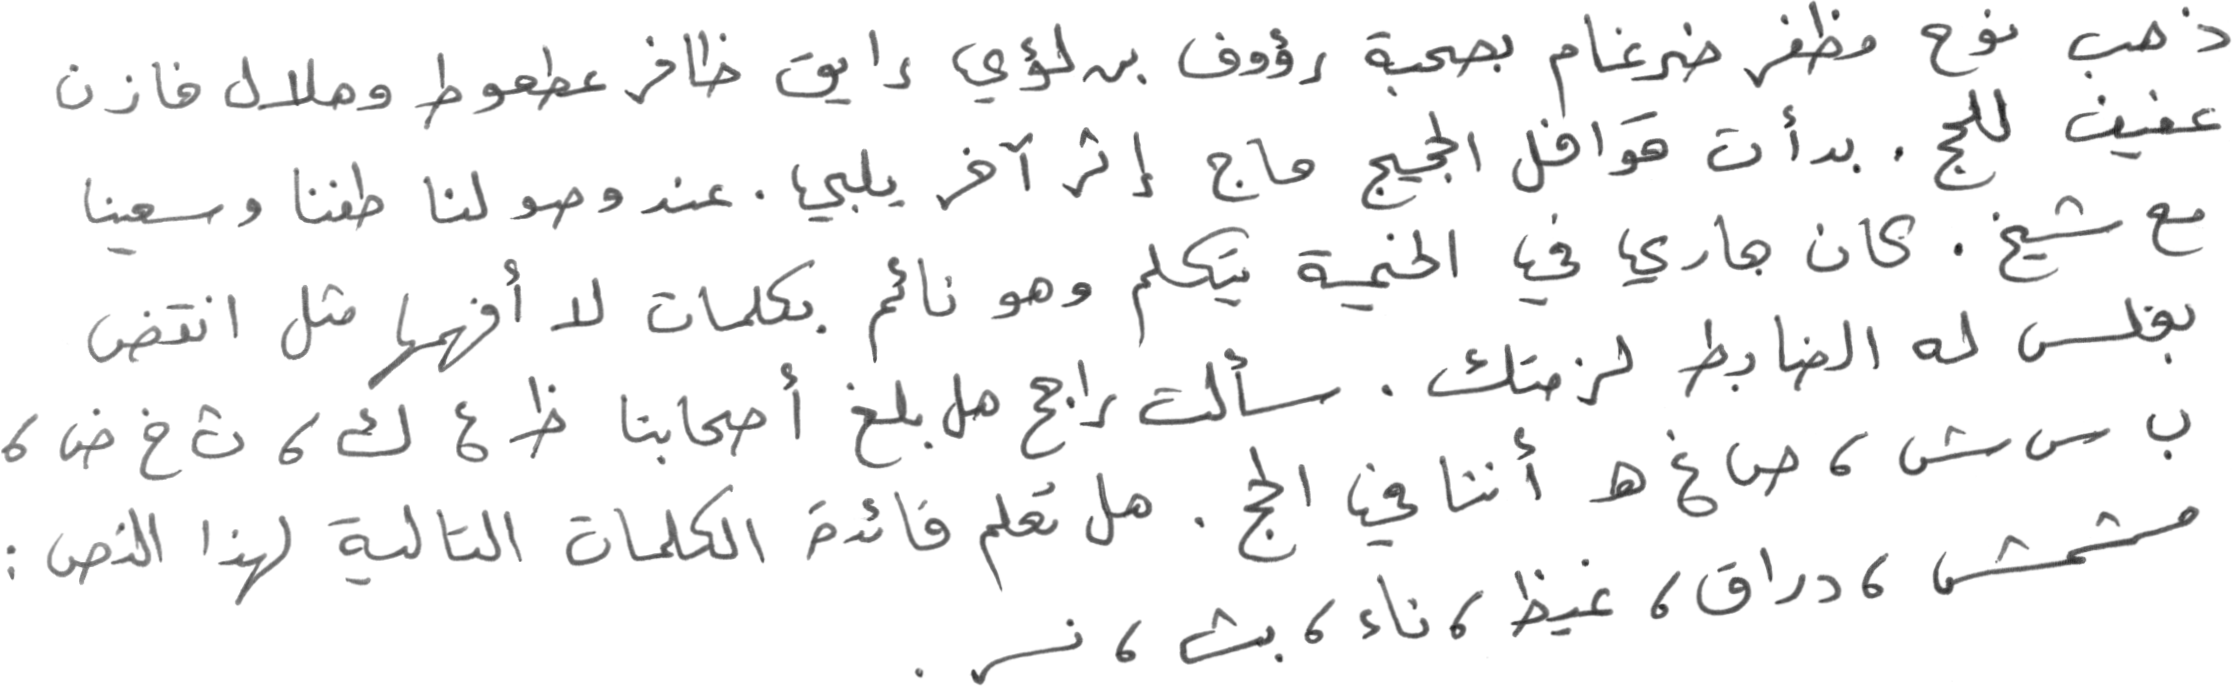 ذهب نوح مظفر ضرغام بصحبة رؤوف بن لؤي رايق ظافر عطعوط وهلال فازن
عفيف للحج. بدأت قوافل الحجيج حاج إثر آخر يلبي. عند وصولنا طفنا وسعينا
مع شيخ. كان جاري في الخيمة يتكلم وهو نائم بكلمات لا أفهمها مثل انتقض
بقلس له الضابط لزمتك. سألت رابح هل بلغ أصحابنا ظ ع ك، ث خ ض،
ب س ش، ص غ ه أننا في الحج. هل تعلم فائدة الكلمات التالية لهذا النص:
مشمش، دراق، غيظ، ناء، بث، نسر.